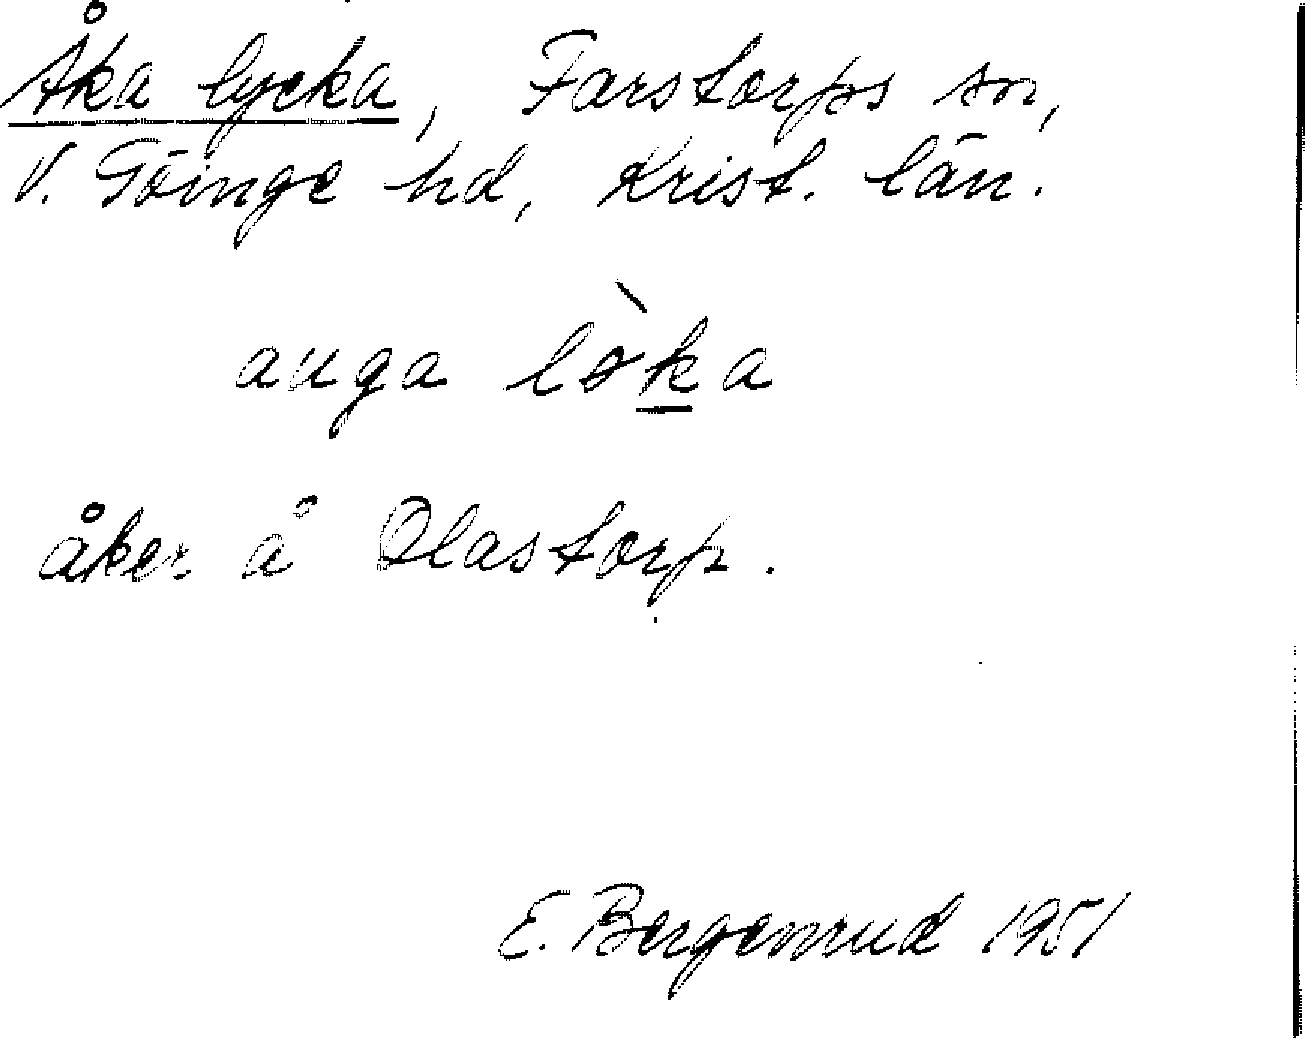 Åka lycka, Farstorps sn,
V. Göinge hd, Krist. län.
auga lo&#768;ka
åker å Olastorp.
E. Bergenrud 1951